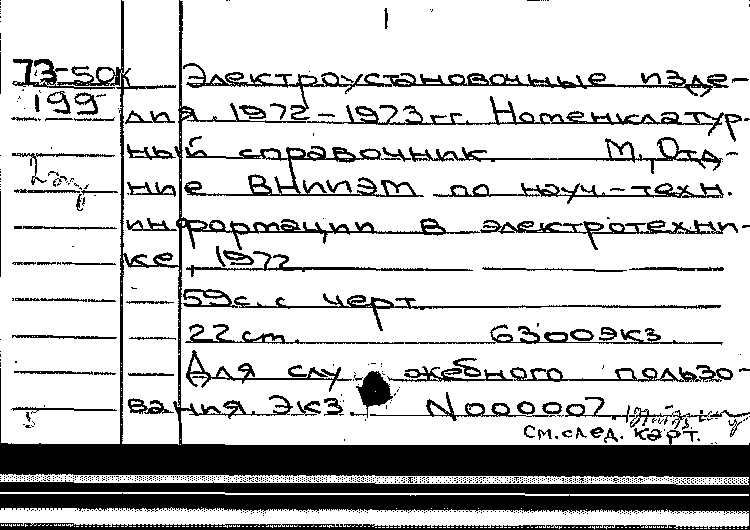 1
73-50К Электроустановочные изде-
199 лия. 1972-1973 гг. Номенклатур-
ный справочник. М., Отд-
ние ВНИИЭМ по науч.-техн.
информации в электротехни-
ке, 1972
59 с. с черт.
22 см. 6300 экз.
Для служебного пользо-
вания. Экз. N 000007.
5
См. след. карт.